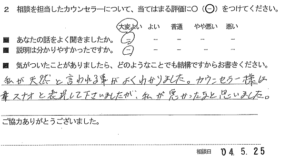 2 相談を担当したカウンセラーについて、当てはまる評価に○(○)をつけてください。
大変よい よい 普通 やや悪い 悪い
■ あなたの話をよく聞きましたか。
■ 説明は分かりやすかったですか。
■ 気がついたことがありましたら、どのようなことでも結構ですからお書きください。
私が天然と言われる事がよくわかりました。カウンセラー様は
下さいましたが、私が悪かったなと思いました。
ご協力ありがとうございました。
相談日 '04.5.25